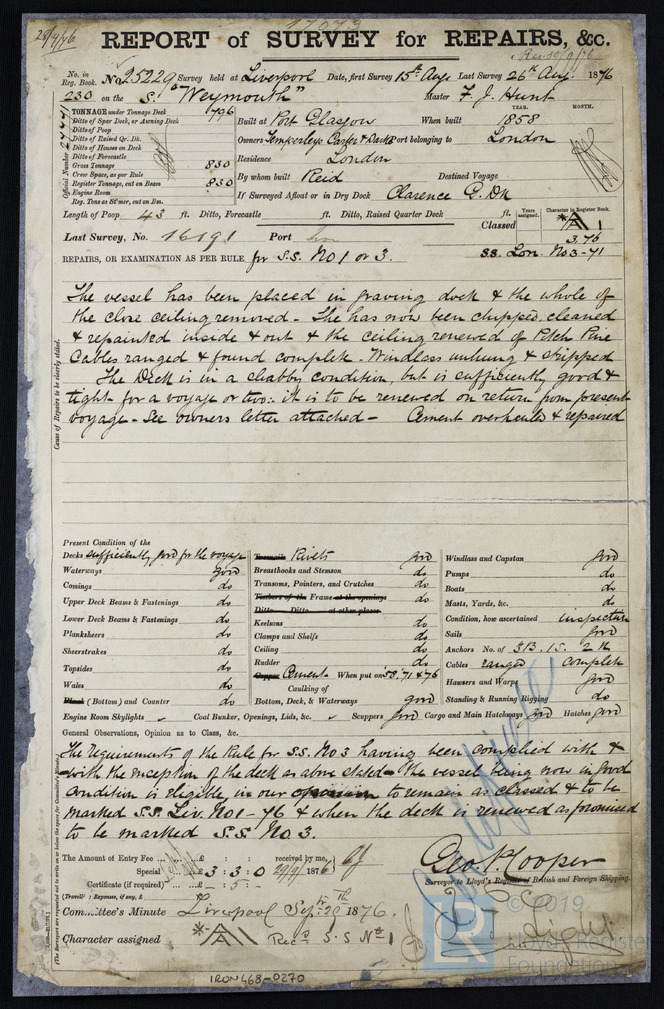 28/9/76
17073
REPORT of SURVEY for REPAIRS, &c.
No. in Reg. Book. No. 25229 Survey held at Liverpool Date, first Survey 15th Aug. Last Survey 26th Aug. 1876
230 on the S. "Weymouth" Master F. J. Hunt
TONNAGE under Tonnage Deck 796
Ditto of Spar Deck, or Awning Deck
Ditto of Poop
Ditto of Raised Qr. Dk.
Ditto of Houses on Deck
Ditto of Forecastle
Gross Tonnage 830
Crew Space, as per Rule
Register Tonnage, cut on Beam 830
Engine Room
Reg. Tons as Stmer, cut on Bm.
Official Number
YEAR. MONTH.
Built at Port Glasgow When built 1858
Owners Temperleys Carter & Darke Port belonging to London
Residence London
By whom built Reid Destined Voyage
If Surveyed Afloat or in Dry Dock Clarence G. Dk
Length of Poop 43 ft. Ditto, Forecastle ft. Ditto, Raised Quarter Deck ft.
Years assigned. Character in Register Book.
Classed *A1
3.76
Last Survey, No. 16191 Port
REPAIRS, OR EXAMINATION AS PER RULE for S.S. No 1 or 3. SS. Lon. No3-71
Cause of Repairs to be clearly stated.
The vessel has been placed in graving dock & the whole of
the close ceiling removed - She has now been chipped cleaned
& repainted inside & out & the ceiling renewed of Pitch Pine
Cables ranged & found complete. Windlass unhung & stripped
The Deck is in a shabby condition, but is sufficiently good &
tight for a voyage or two: it is to be renewed on return from present
voyage - See owners letter attached - Cement overhauled & repaired
Present Condition of the
Decks sufficiently good for the voyage
Waterways good
Comings do
Upper Deck Beams & Fastenings do
Lower Deck Beams & Fastenings do
Planksheers do
Sheerstrakes do
Topsides do
Wales do
Plank (Bottom) and Counter do
Treenails Rivets good
Breasthooks and Stemson do
Transoms, Pointers, and Crutches do
Timbers of the Frame at the openings do
Ditto Ditto at other places
Keelsons do
Clamps and Shelfs do
Ceiling do
Rudder do
Copper Cement - When put on '58, '71 & '76
Caulking of
Bottom, Deck, & Waterways good
Windlass and Capstan good
Pumps do
Boats do
Masts, Yards, &c. do
Condition, how ascertained inspection
Sails good
Anchors No. of 3B. 1S. 2K
Cables ranged complete
Hawsers and Warps good
Standing & Running Rigging do
Engine Room Skylights Coal Bunker, Openings, Lids, &c. Scuppers good Cargo and Main Hatchways good Hatches good
General Observations, Opinion as to Class, &c.
The requirements of the Rule for S.S. No 3 having been complied with &
with the exception of the deck as above stated - the vessel being now in good
condition is eligible in our opinion to remain as classed & to be
marked S.S. Liv. No1-76 & when the deck is renewed as promised
to be marked S.S. No 3.
The Amount of Entry Fee ... £ : : received by me,
Special £ 3 : 3 : 0 29/9/1876
Certificate (if required) ... £ - : 5 : -
(Travelling Expenses, if any, £ )
Geo. P. Cooper
Surveyor to Lloyd's Register of British and Foreign Shipping.
Committee's Minute Liverpool Sept. 29th 1876.
Character assigned *A1 Recd S.S No 1
© 2019
Lloyd's Register
Foundation
IRON468-0270